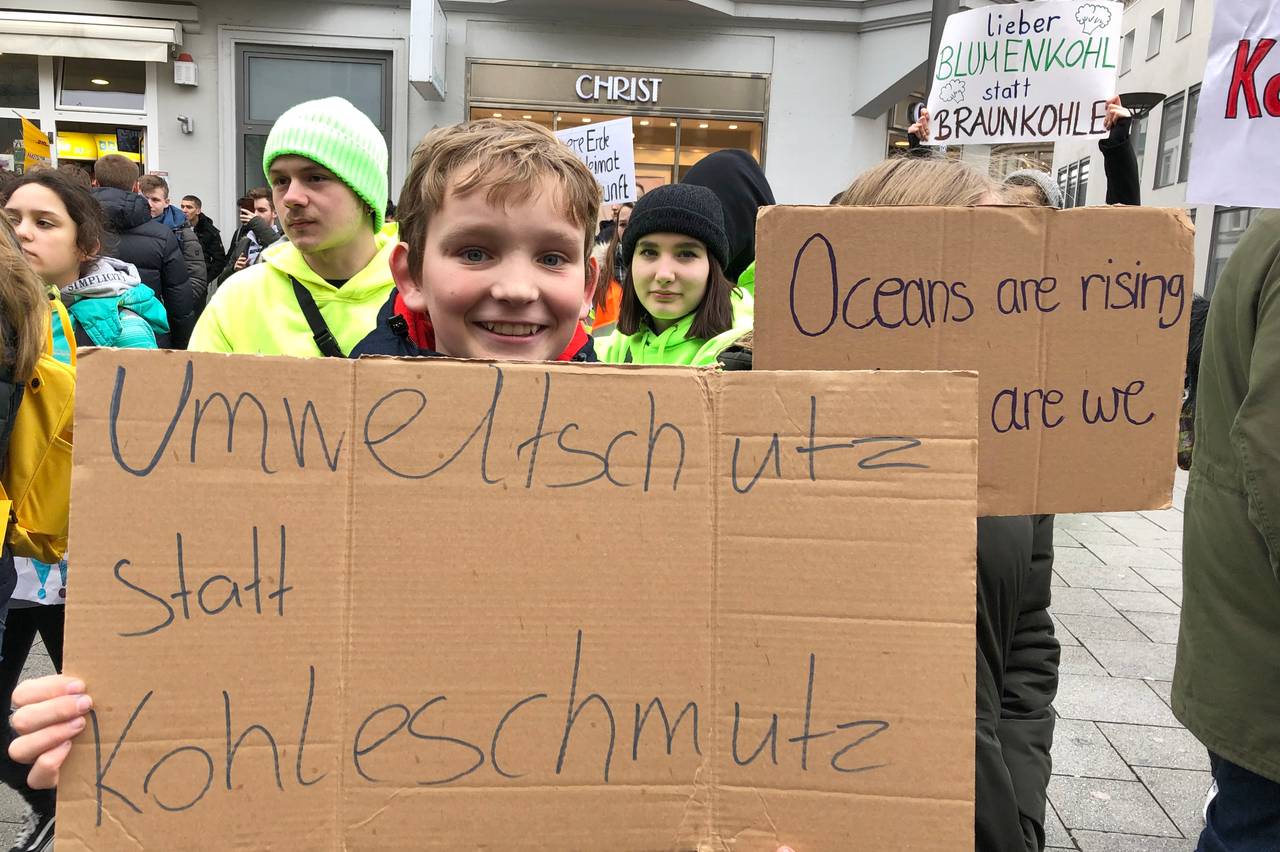 CHRIST
lieber
BLUMENKOHL
statt
BRAUNKOHLE
ere Erde
eimat
unft
SIMPLICIT
Oceans are rising
are we
Umweltschutz
statt
Kohleschmutz